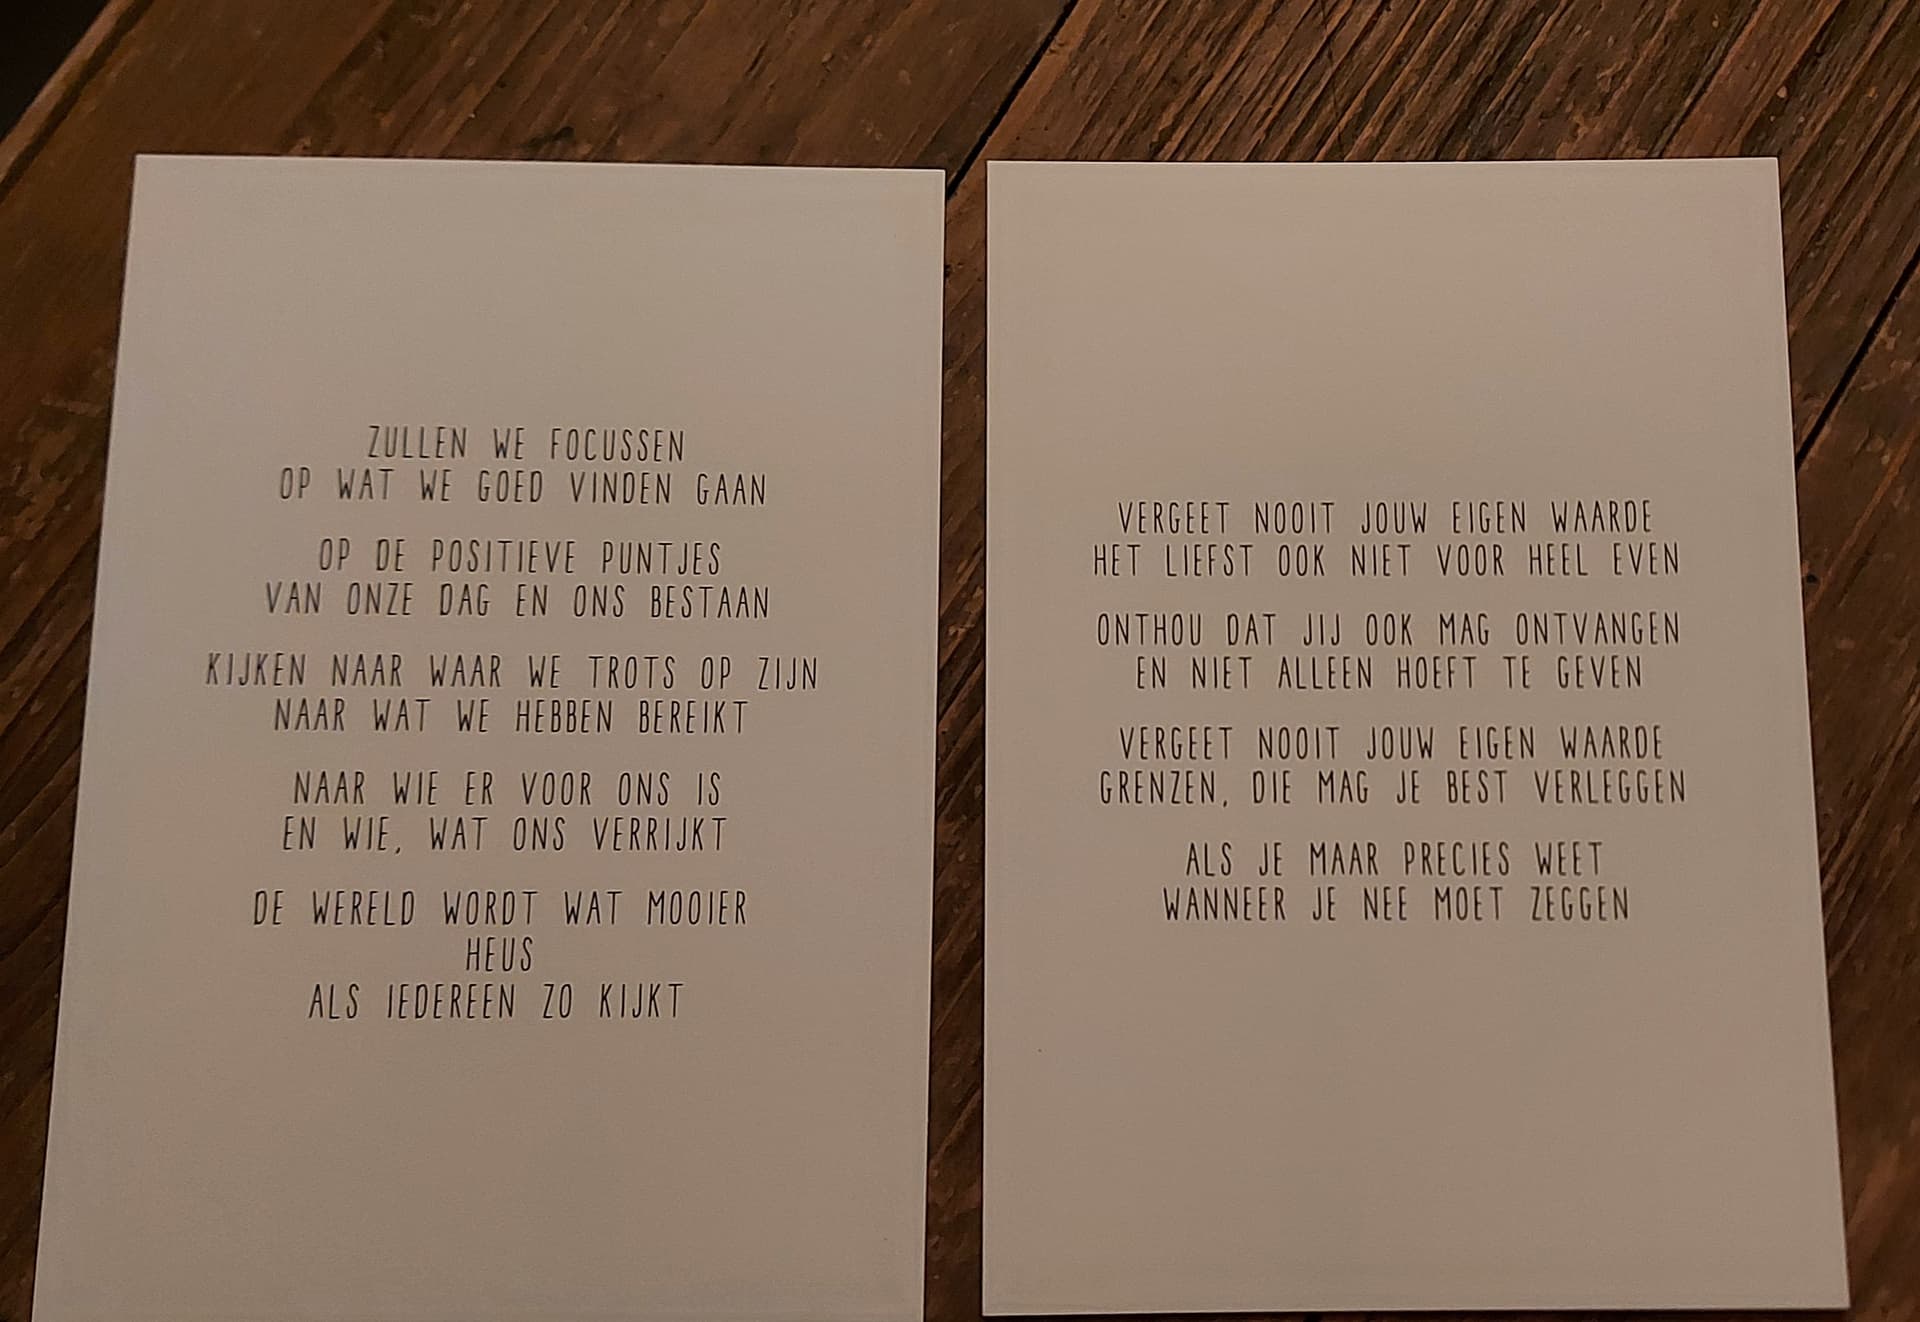 ZULLEN WE FOCUSSEN
OP WAT WE GOED VINDEN GAAN
OP DE POSITIEVE PUNTJES
VAN ONZE DAG EN ONS BESTAAN
KIJKEN NAAR WAAR WE TROTS OP ZIJN
NAAR WAT WE HEBBEN BEREIKT
NAAR WIE ER VOOR ONS IS
EN WIE, WAT ONS VERRIJKT
DE WERELD WORDT WAT MOOIER
HEUS
ALS IEDEREEN ZO KIJKT
VERGEET NOOIT JOUW EIGEN WAARDE
HET LIEFST OOK NIET VOOR HEEL EVEN
ONTHOU DAT JIJ OOK MAG ONTVANGEN
EN NIET ALLEEN HOEFT TE GEVEN
VERGEET NOOIT JOUW EIGEN WAARDE
GRENZEN, DIE MAG JE BEST VERLEGGEN
ALS JE MAAR PRECIES WEET
WANNEER JE NEE MOET ZEGGEN